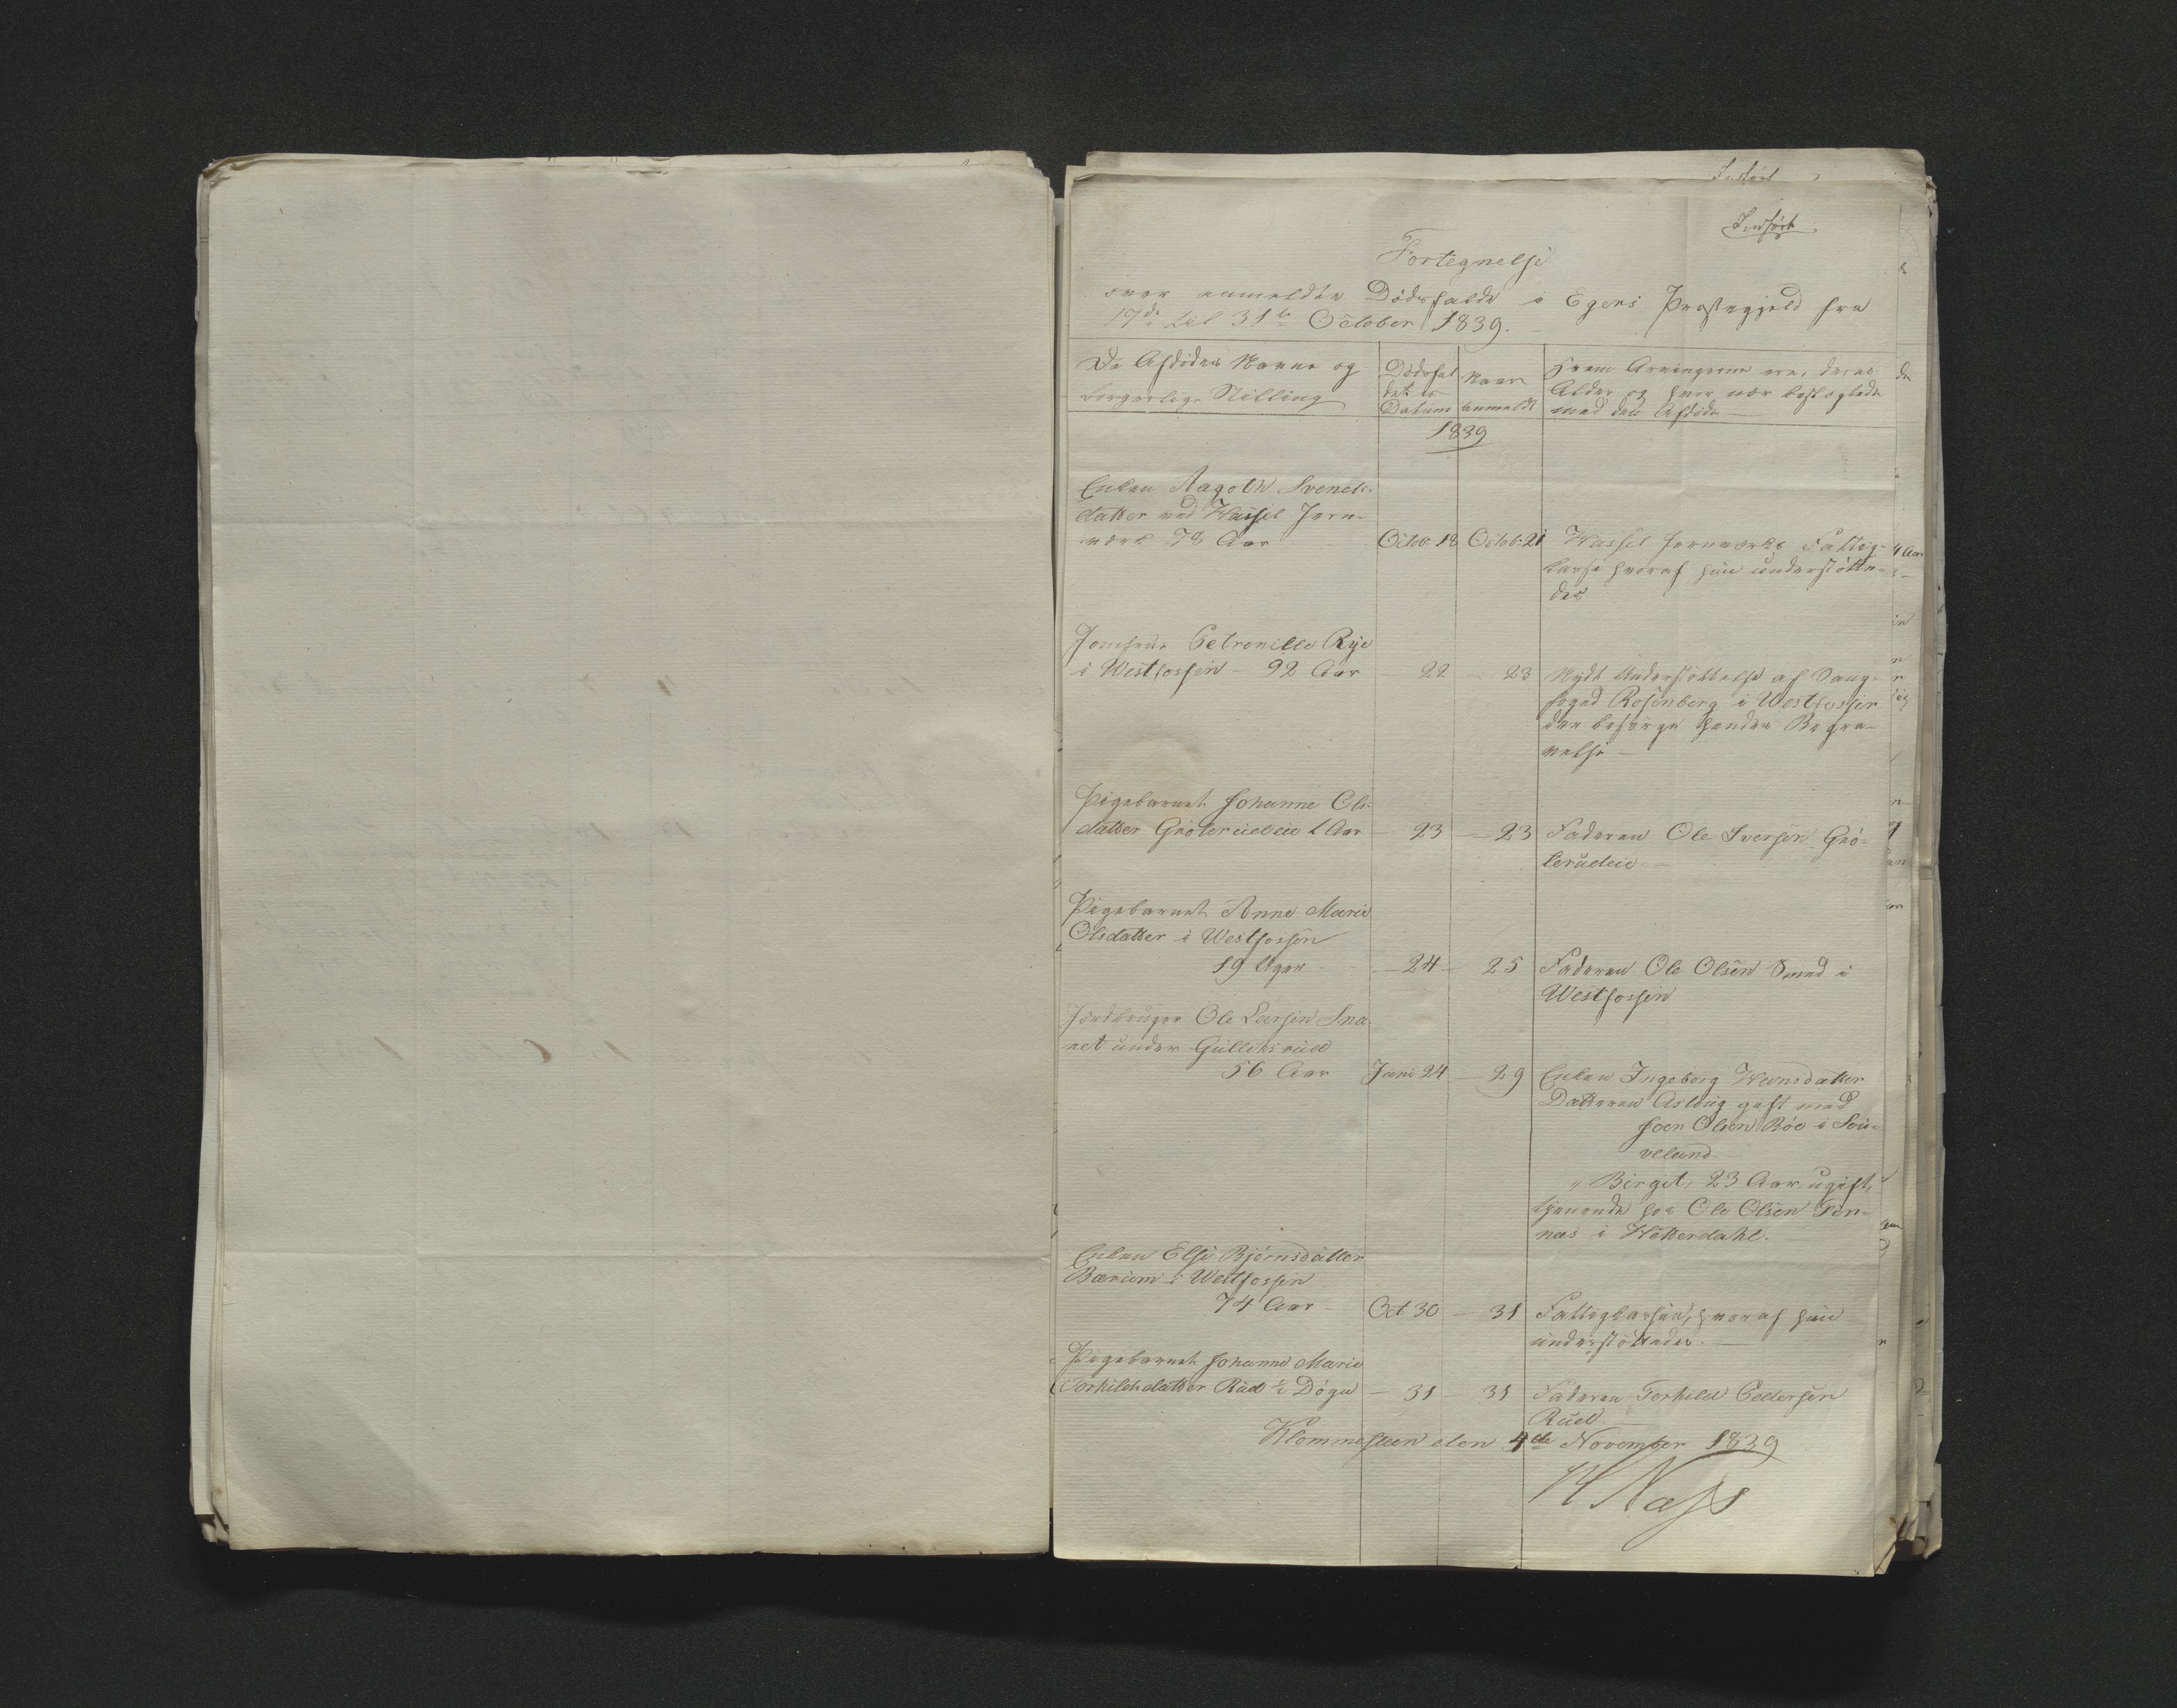 Indført
Fortegnelse
over anmeldte Dødsfalde i Egers Præstegjeld fra
17de til 31te October 1839.
De Afdødes Navne og
borgerlige Stilling
Dødsfal
dets
Datum
Naar
anmeldt
Hvem Arvingerne ere, deres
Alder og hvor nær beslægtede
med den Afdøde
1839
Enken Aagoth Svends-
datter ved Wassel Jern-
værk 78 Aar
Octob 18
Octob. 21
Wassel Jernværks Fattig-
kasse hvoraf hun understötte-
des
Jomfrue Petronille Rye
i Westfossen - 92 Aar
- 22
- 23
Nydt Understöttelse af Saug-
foged Rosenberg i Westfossen
der besørge hendes Begra-
velse -
Pigebarnet Johanne Ols-
datter Groterudeie 1 Aar
- 23
- 23
Faderen Ole Iversen Gro-
terudeie -
Pigebarnet Anne Marie
Olsdatter i Westfossen
19 Uger
- 24
- 25
Faderen Ole Olsen Smed i
Westfossen
Jordbruger Ole Larsen Sna-
ret under Gulliksrud
56 Aar
Juni 24
- 29
Enken Ingeborg
Datteren Aslaug gift med
Joen Olsen Röe i Sou-
veland
" Birgit, 23 Aar, ugift,
tjenende hos Ole Olsen
næs i Hitterdahl.
Enken Else Bjørnsdatter
Bærum i Westfossen
74 Aar
Oct 30
- 31
Fattigkassen, hvoraf hun
understöttedes. -
Pigebarnet Johanne Marie
Torkildsdatter Rud ½ Døgn
- 31
- 31
Faderen Torkild Pedersen
Rud. -
Klommesteen den 4de November 1839
H Nass